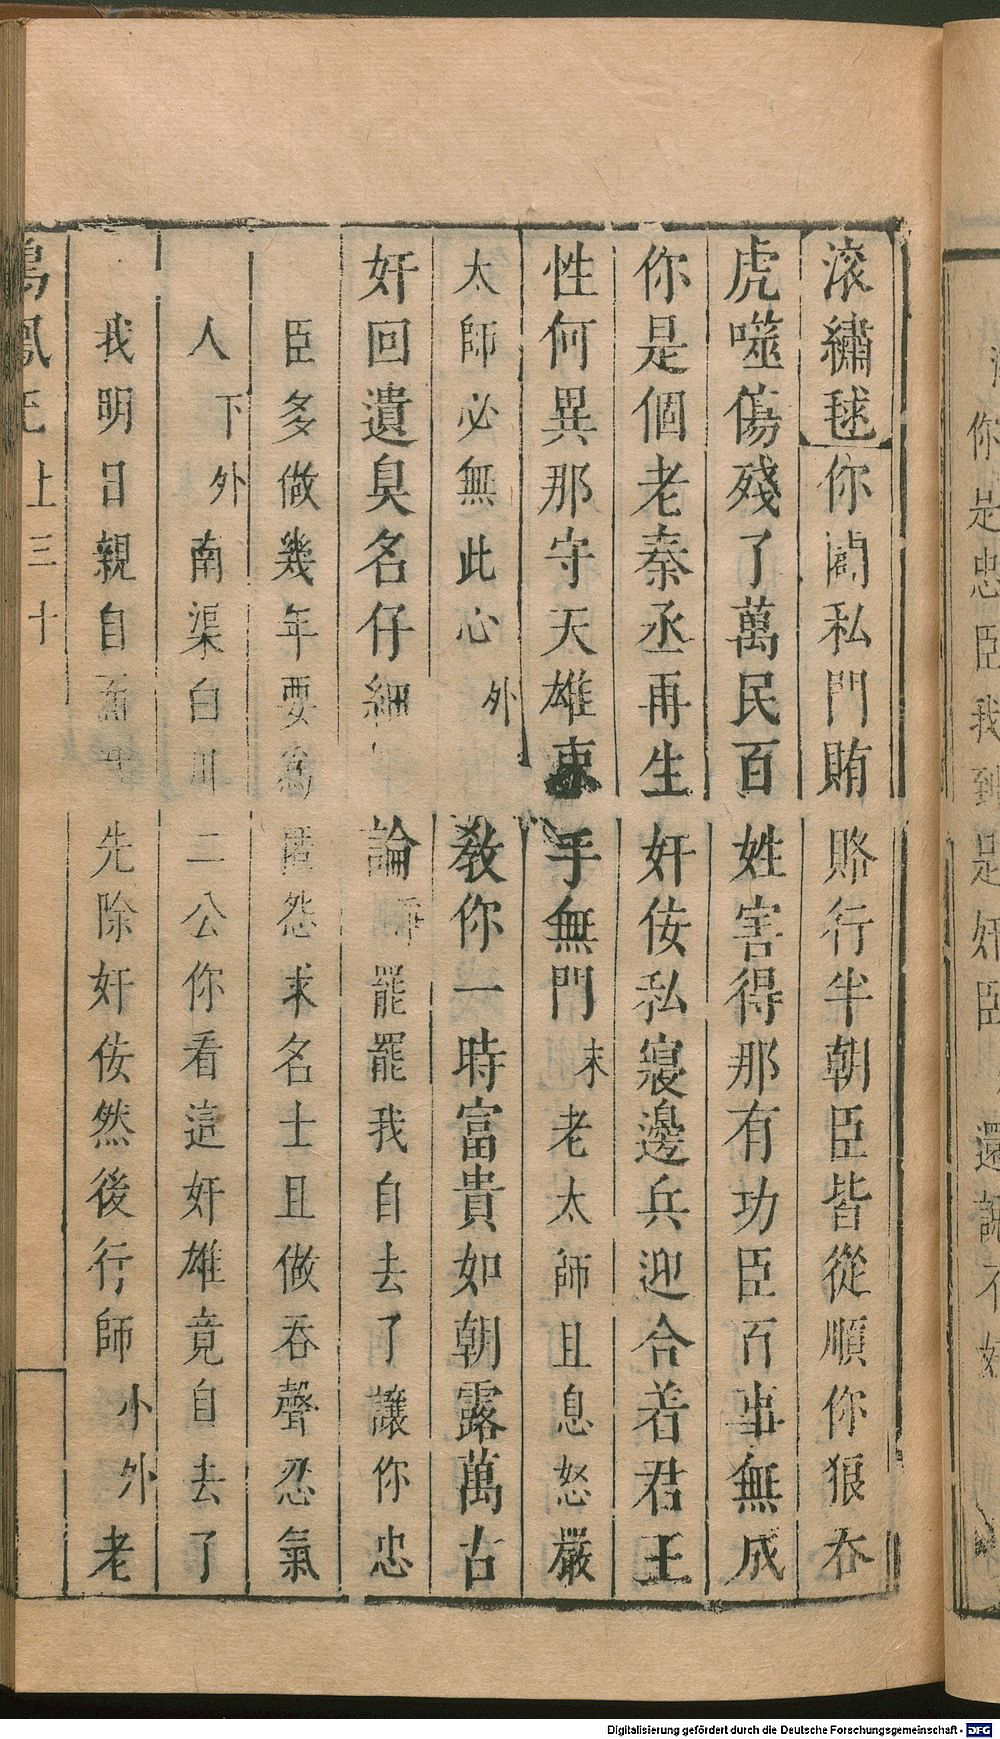 滚繡毬你開私門賄賂行半朝臣皆從順你狼吞
虎噬傷殘了萬民百姓害得那有功臣百事無成
你是個老秦丞再生奸佞私寢邊兵迎合着君王
性何異那守天雄束手無門末老太師且息怒嚴
太師必無此心外教你一時富貴如朝露萬古
奸回遺臭名仔細論淨罷罷我自去了讓你忠
臣多做幾年要為匿怨求名士且做吞聲忍氣
人下外南渠白川二公你看這奸雄竟自去了
我明日親自先除奸佞然後行師小外老
鳴鳳記上三十
你是忠臣我到是奸臣還說不好
Digitalisierung gefördert durch die Deutsche Forschungsgemeinschaft - DFG